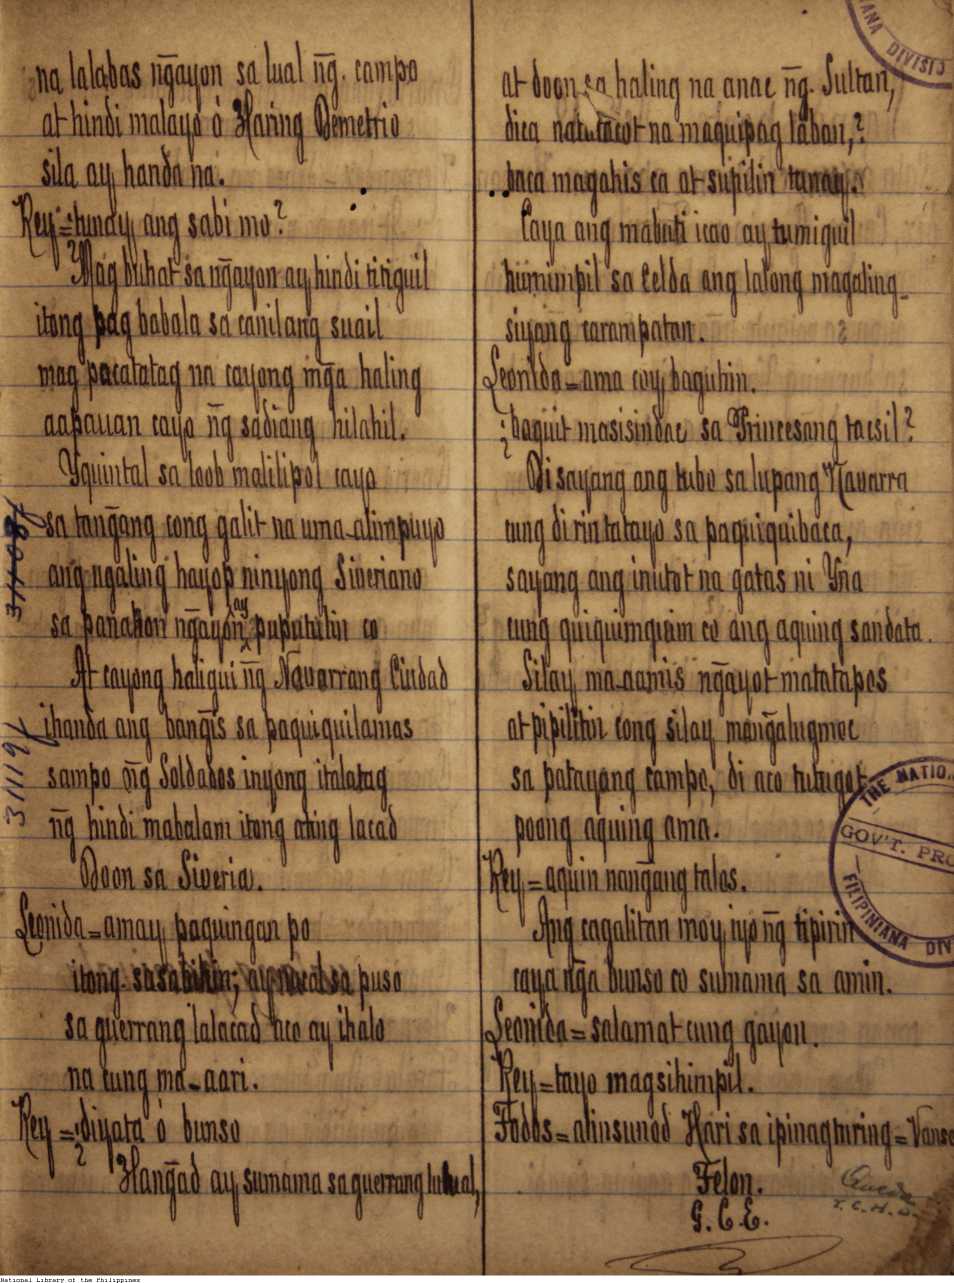 na lalabas n͠gayon sa lual n͠g. campo
at hindi malayo ó Haring Demetrio
sila ay handa na.
Rey = tunay ang sabi mo?
Mag buhat sa n͠gayon ay hindi titiguil
itong pag babala sa canilang suail
mag pacatatag na cayong m͠ga haling
aapauan cayo n͠g sadiang hilahil.
Yquintal sa loob malilipol cayo
sa tan͠gang cong galit na uma-alimpuyo
ang ngaling hayop ninyong Siveriano
sa panahon n͠gayon, ay puputulin co
At cayong haligui n͠g Navarrang Ciudad
ihanda ang ban͠gis sa paquiquilamas
sampo n͠g Soldados inyong italatag
n͠g hindi mabalam itong ating lacad
Doon sa Siveria.
Leonida = amay paquingan po
itong sasabihin; ay sa puso
sa guerrang lalacad aco ay ihalo
na cung ma-aari.
Rey = ¿diyata ó bunso
Han͠gad ay sumama sa guerrang
311108
311191
at doon sa haling na anac n͠g. Sultan,
dica natatacot na maquipag laban,?
baca magahis ca at supilin tanay.
Caya ang mabuti icao ay tumiguil
humimpil sa Celda ang lalong magaling
siyang carampatan.
Leonida = ama coy baguhin.
¿baquit masisindac sa Princesang tacsil?
Di sayang ang tubo sa lupang Navarra
cung di rin tatayo sa paquiquibaca,
sayang ang inutot na gatas ni Yna
cung quiquimquim co ang aquing sandata.
Silay ma-aamis n͠gayot matatapos
at pipilitin cong silay man͠galugmoc
sa patayang campo, di aco tutugot
poong aquing ama.
Rey = aquin nan͠gang talos.
Ang cagalitan moy iyo n͠g tipirin
caya n͠ga bunso co sumama sa amin.
Leonida = salamat cung gayon.
Rey = tayo magsihimpil.
Todos = alinsunod Hari sa ipinagturing =
Telon.
G. C. E.
THE NATIO
GOV'T. PRO
FILIPINIANA DIV
ANA DIVISIO
National Library of the Philippines